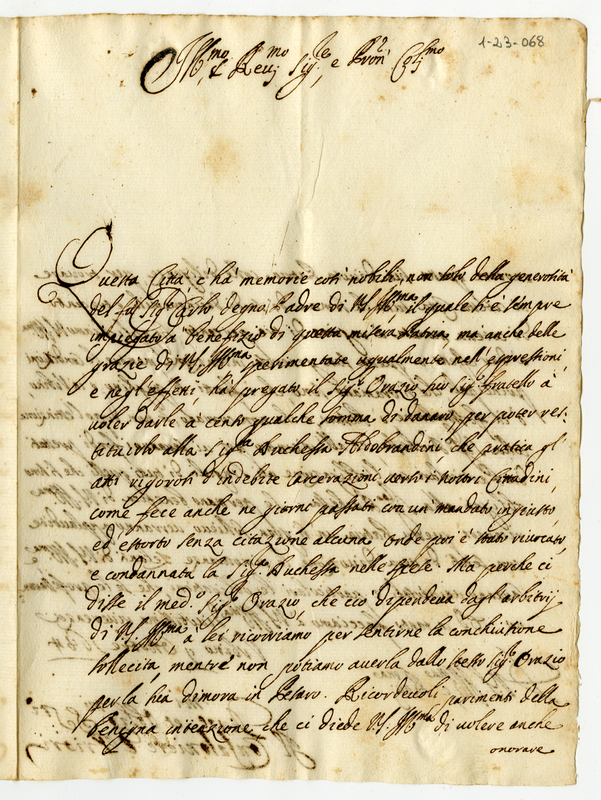 1-23-068
Ill.mo e Rev.mo Sig.re e Pron Col.mo
Questa Città, c'hà memorie così nobili, non solo della generosità
del fù Sig.r Carlo degno Padre di V.S. Ill.ma il quale si è sempre
impiegato à benefizio di questa misera Patria, mà anche delle
grazie di V.S. Ill.ma sperimentate ugualmente nell'espressioni,
e negl'effetti, hà pregato il Sig.r Orazio suo Sig.r fratello à
voler darle à censo qualche somma di danaro, per poter res-
tituirlo alla Sig.ra Duchessa Aldobrandini, che pratica gl'
atti vigorosi d'indebite carcerazioni verso i nostri Cittadini,
come fece anche ne giorni passati con un mandato ingiusto,
ed estorto senza citazione alcuna, onde poi è stato rivocato,
e condannata la Sig.ra Duchessa nelle spese. Ma perche ci
disse il med.o Sig.r Orazio, che ciò dipendeva dagl'arbitrij
di V.S. Ill.ma, à lei ricorriamo per sentirne la conchiusione
sollecita, mentre non potiamo averla dallo stesso Sig.r Orazio
per la sua dimora in Pesaro. Ricordevoli parimenti della
benigna intenzione, che ci diede V.S. Ill.ma di volere anche
onorare